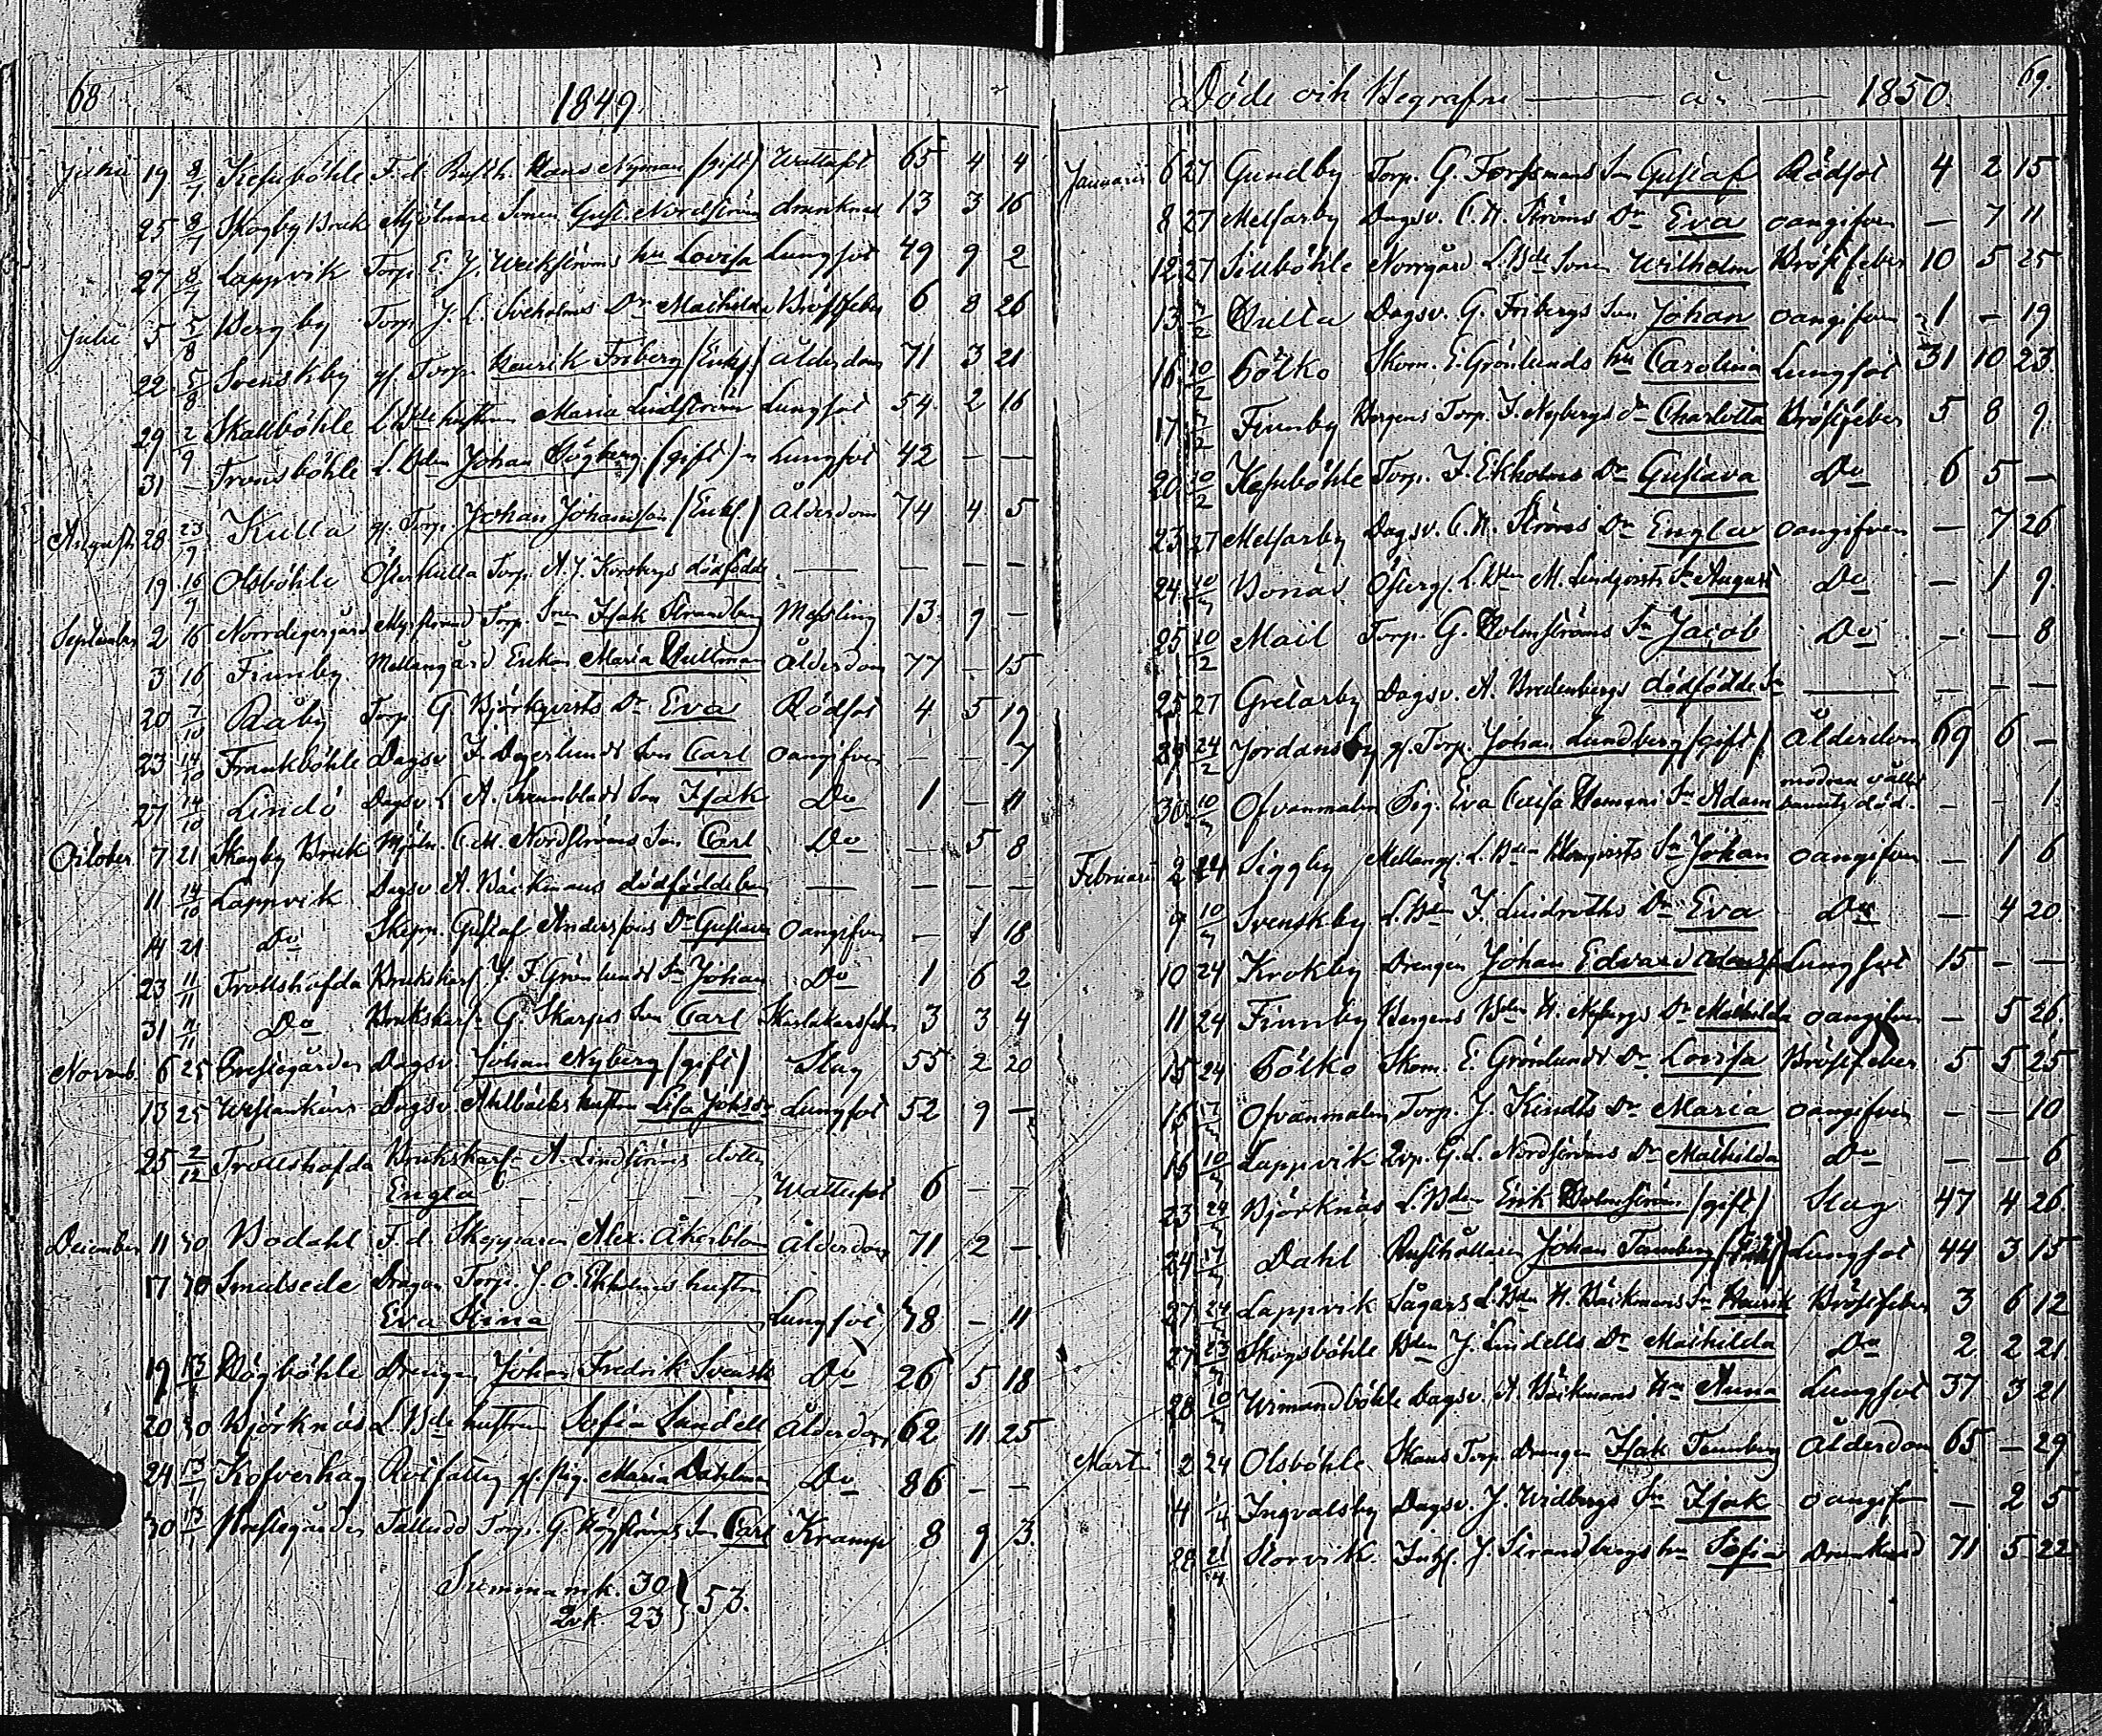 68
1849.
Juni 19 8/7 Kesuböhle F. d. Rusth. Hans Nyman (gift) Wattusot 65 4 4
25 8/7 Skogby Bruk Mjölnare Sonen Gust. Nordström drunknad 13 3 16
27 8/7 Lappvik Torp. E. J. Weckströms hu Lovisa Lungsot 49 9 2
Julii 5 5/8 Bergby Torp. J. L. Dr Mathilda Bröstfeber 6 8 26
22 5/8 Svenskby gl. Torp. Henrik Friberg (Enkl.) Ålderdom 71 3 21
29 2/9 Skallböhle L. Bde hustru Maria Lindström Lungsot 54 2 16
31 – Trönsböhle L. Bden Johan Högberg (gift) Lungsot 42 — —
Augusti 28 23/9 Kulla gl. Torp. Johan Johansson (Enkl) Ålderdom 74 4 5
19 16/9 Olsböhle Österkulla Torp. A. J. Korsbergs dödfödde — — — —
September 2 16 Norrdegergård Torp. Son Isak Strandberg Messling 13 9 –
3 16 Finnby Mellangård Enkan Maria Hultman Ålderdom 77 – 15
20 7/10 Råby Torp G. Björkqvists Dr Eva Rödsot 4 5 19
23 14/10 Frankböhle Dagsv. F. Degerlunds Son Carl oangifven — — 7
27 14/10 Lindö Dagsv. L. A. Son Isak Do 1 – 11
October 7 21 Skogby Bruk Mjöln. C. M. Nordströms Son Carl Do – 5 8
11 14/10 Lappvik Dagsv. A. Bäckmans dödfödde — — — —
14 21 Do Skepp. Gustaf Anderssons Dr Gustava Oangifven – 1 18
23 11/11 Trollshofda Brukskarl J. F. Grönlunds Sn Johan Do 1 6 2
31 11/11 Do Brukskarl G. Skarps Son Carl Skarlakansfeber 3 3 4
Novemb. 6 25 Prestegården Dagsv. Johan Nyberg (gift) Slag 55 2 20
13 25 Westankärr Dagsv. Ahlbäcks hustru Lisa Lungsot 52 9 –
25 2/12 Trollshofda Brukskarl A. Lindströms dotter
Engla — — — — Wattusot 6 – –
December 11 30 Bodahl F. d. Skepparen Alex. Åkerblom Ålderdom 71 2 –
17 30 Smedsede Dragon Torp. J. O. Ekholms hustru
Eva Stina — Lungsot 38 – 11
19 13/1 Högböhle Drengen Johan Fredrik Svensk Do 26 5 18
20 30 Björknäs L. Bde hustrun Sofia Sandell Ålderdom 62 11 25
24 13/1 Kofverhag Rotfattig gl. pig. Maria Dahlman Do 86 – –
30 13/1 Prestegården Talludd Torp. G. Högströms Sn Carl Kramp 8 9 3.
Summa mk. 30 } 53.
Qvk 23
Döde och Begrafne — år — 1850. 69.
Januarii 6 27 Gundby Torp. G. Forssmans Son Gustaf Rödsot 4 2 15
8 27 Melsarby Dagsv. C. H. Ströms Dr Eva oangifven — 7 11
12 27 Siuböhle Norrgård L. Bde Sonen Wilhelm Bröstfeber 10 5 25
13 Hulta Dagsv. G. Fribergs Son Johan oangifven 1 – 19
16 10/2 Bölko Skom. E. Grönlunds hu Carolina Lungsot 31 10 23
17 Finnby Bergens Torp. J. Nybergs dr Charlotta Bröstfeber 5 8 9.
20 10/2 Kesuböhle Torp. J. Ekholms Dr Gustava Do 6 5 –
23 27 Melsarby Dagsv. C. H. Ströms Dr Engla oangifven – 7 26
24 10/3 Bonäs Österg. L. Bden M. Lindqvists Sn August Do – 1 9.
25 10/2 Mail Torp. G. Holmströms Sn Jacob Do – – 8
25 27 Gretarby Dagsv. A. Bredenbergs dödfödde Sn — — — —
24/2 Jordansby gl. Torp. Johan Lundberg (gift) Ålderdom 69 6 –
30 10/3 Ofvanmalm Pig. Eva Sn Adam modren vållat barnets död. – – 1
Februari 2 24 Siggby Mellang. L. Bden Blomqvists Sn Johan oangifven – 1 6
9 10/3 Svenskby L. Bden J. Lindroths Dr Eva Do – 4 20.
10 24 Krokby Drengen Johan Edvard Lungsot 15 – –
11 24 Finnby Bergens Bden H. Nybergs Dr Mathilda oangifven – 5 26.
15 24 Bölko Skom. E. Grönlunds Dr Lovisa Bröstfeber 5 5 25
16 17/3 Ofvanmalm Torp. J. Kindts Dr Maria oangifven – – 10
16 10/3 Lappvik G. L. Nordströms Dr Mathilda Do – – 6
23 24/3 Björknäs L. Bden Erik Holmström (gift) Slag 47 4 26.
24 17/3 Dahl Rusthållaren Johan Tamberg Lungsot 44 3 15
27 24/3 Lappvik Sågars L. Bden H. Bäckmans Sn Henrik Bröstfeber 3 6 12
27 Skogsböhle Bden J. Lindells Dr Mathilda Do 2 2 21.
28 10/3 Wimandböhle Dagsv. A. Bäckmans Hu Anna Lungsot 37 3 21
Marti 2 24 Olsböhle Skans Torp. Drengen Isak Tennberg Ålderdom 65 – 29
4 1/4 Ingvalsby Dagsv. J. Widbergs Sn Isak oangifven – 2 5
28 21/4 Storvik Inhs. J. Strandbergs hu Sofia Drunknad 71 5 22